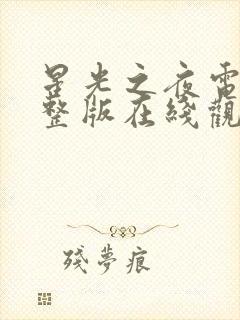 星光之夜電
整版在綫觀
殘夢痕